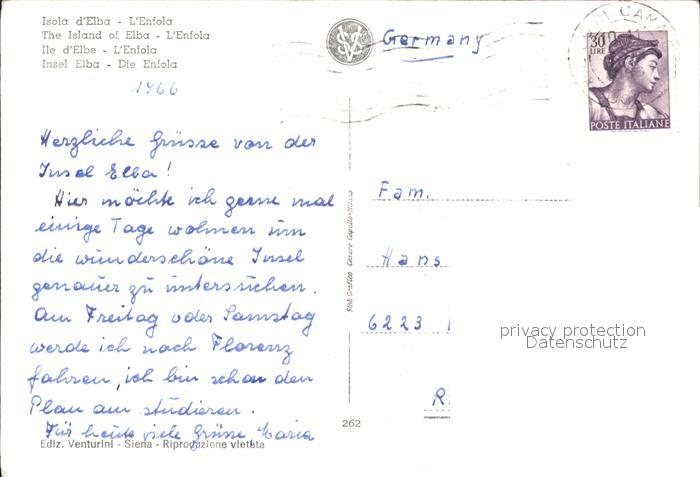 Isola d'Elba - L'Enfola
The Island of Elba - L'Enfola
Ile d'Elbe - L'Enfola
Insel Elba - Die Enfola
1966
Herzliche Grüsse von der
Insel Elba!
Hier möchte ich gerne mal
einige Tage wohnen um
die wunderschöne Insel
genauer zu untersuchen.
Am Freitag oder Samstag
werde ich nach Florenz
fahren, ich bin schon den
Plan am studieren.
Für heute viele Grüsse, Maria
Ediz. Venturini - Siena - Riproduzione vietata
262
Germany
30
LIRE
POSTE ITALIANE
Fam.
Hans
6223
R
privacy protection
Datenschutz